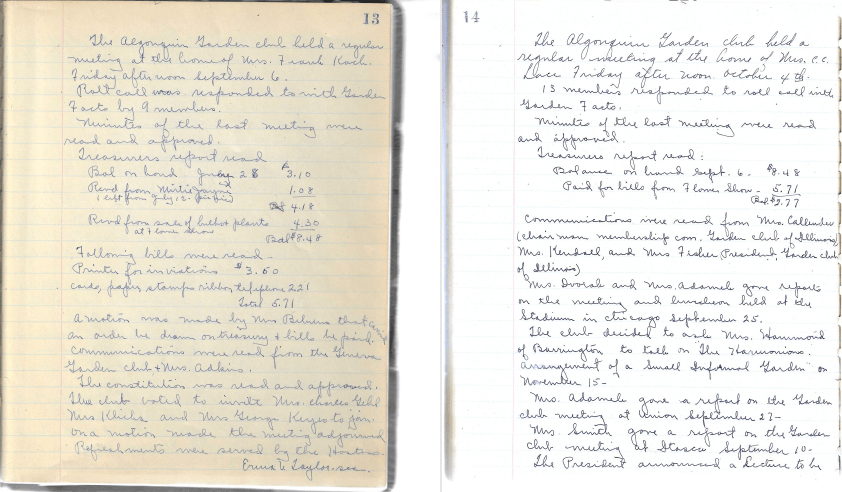 13
The Algonquin Garden club held a regular
meeting at the home of Mrs. Frank Koch.
Friday afternoon September 6.
Roll call was responded to with Garden
Facts by 9 members.
Minutes of the last meeting were
read and approved.
Treasurers report read
Bal on hand June 28 $3.10
Recvd from Mirtie 1.08
Bal 4.18
Recvd from sale of bulbs & plants 4.30
at Flower Show
Bal $8.48
Following bills were read -
Printer for invitations $3.50
cards, paper, stamps ribbon telephone 2.21
Total 5.71
A motion was made by Mrs that
an order be drawn on treasury & bills be paid.
Communications were read from the Geneva
Garden club & Mrs. Adkins.
The constitution was read and approved.
The club voted to invite Mrs. Charles Gehl
Mrs Klicka and Mrs George Keyes to join
on a motion made the meeting adjourned
Refreshments were served by the Hostess.
Erma E Taylor - sec.
14
The Algonquin Garden club held a
regular meeting at the home of Mrs. C.C.
Friday after noon October 4th.
13 members responded to roll call with
Garden Facts.
Minutes of the last meeting were read
and approved.
Treasurers report read:
Balance on hand Sept. 6. $8.48
Paid for bills from Flower Show - 5.71
Bal $2.77
Communications were read from Mrs. Callender
(chairman membership com. Garden club of Illinois)
Mrs. Kendall, and Mrs Fisher (President, Garden club
of Illinois)
Mrs. Dvorak and Mrs. Adamek gave reports
on the meeting and luncheon held at the
Stadium in Chicago September 25.
The club decided to ask Mrs. Hammond
of Barrington to talk on "The Harmonious
arrangement of a Small Informal Garden" on
November 15 -
Mrs. Adamek gave a report on the Garden
club meeting at Union September 27 -
Mrs. Smith gave a report on the Garden
club meeting at Itasca September 10 -
The President announced a Lecture to be